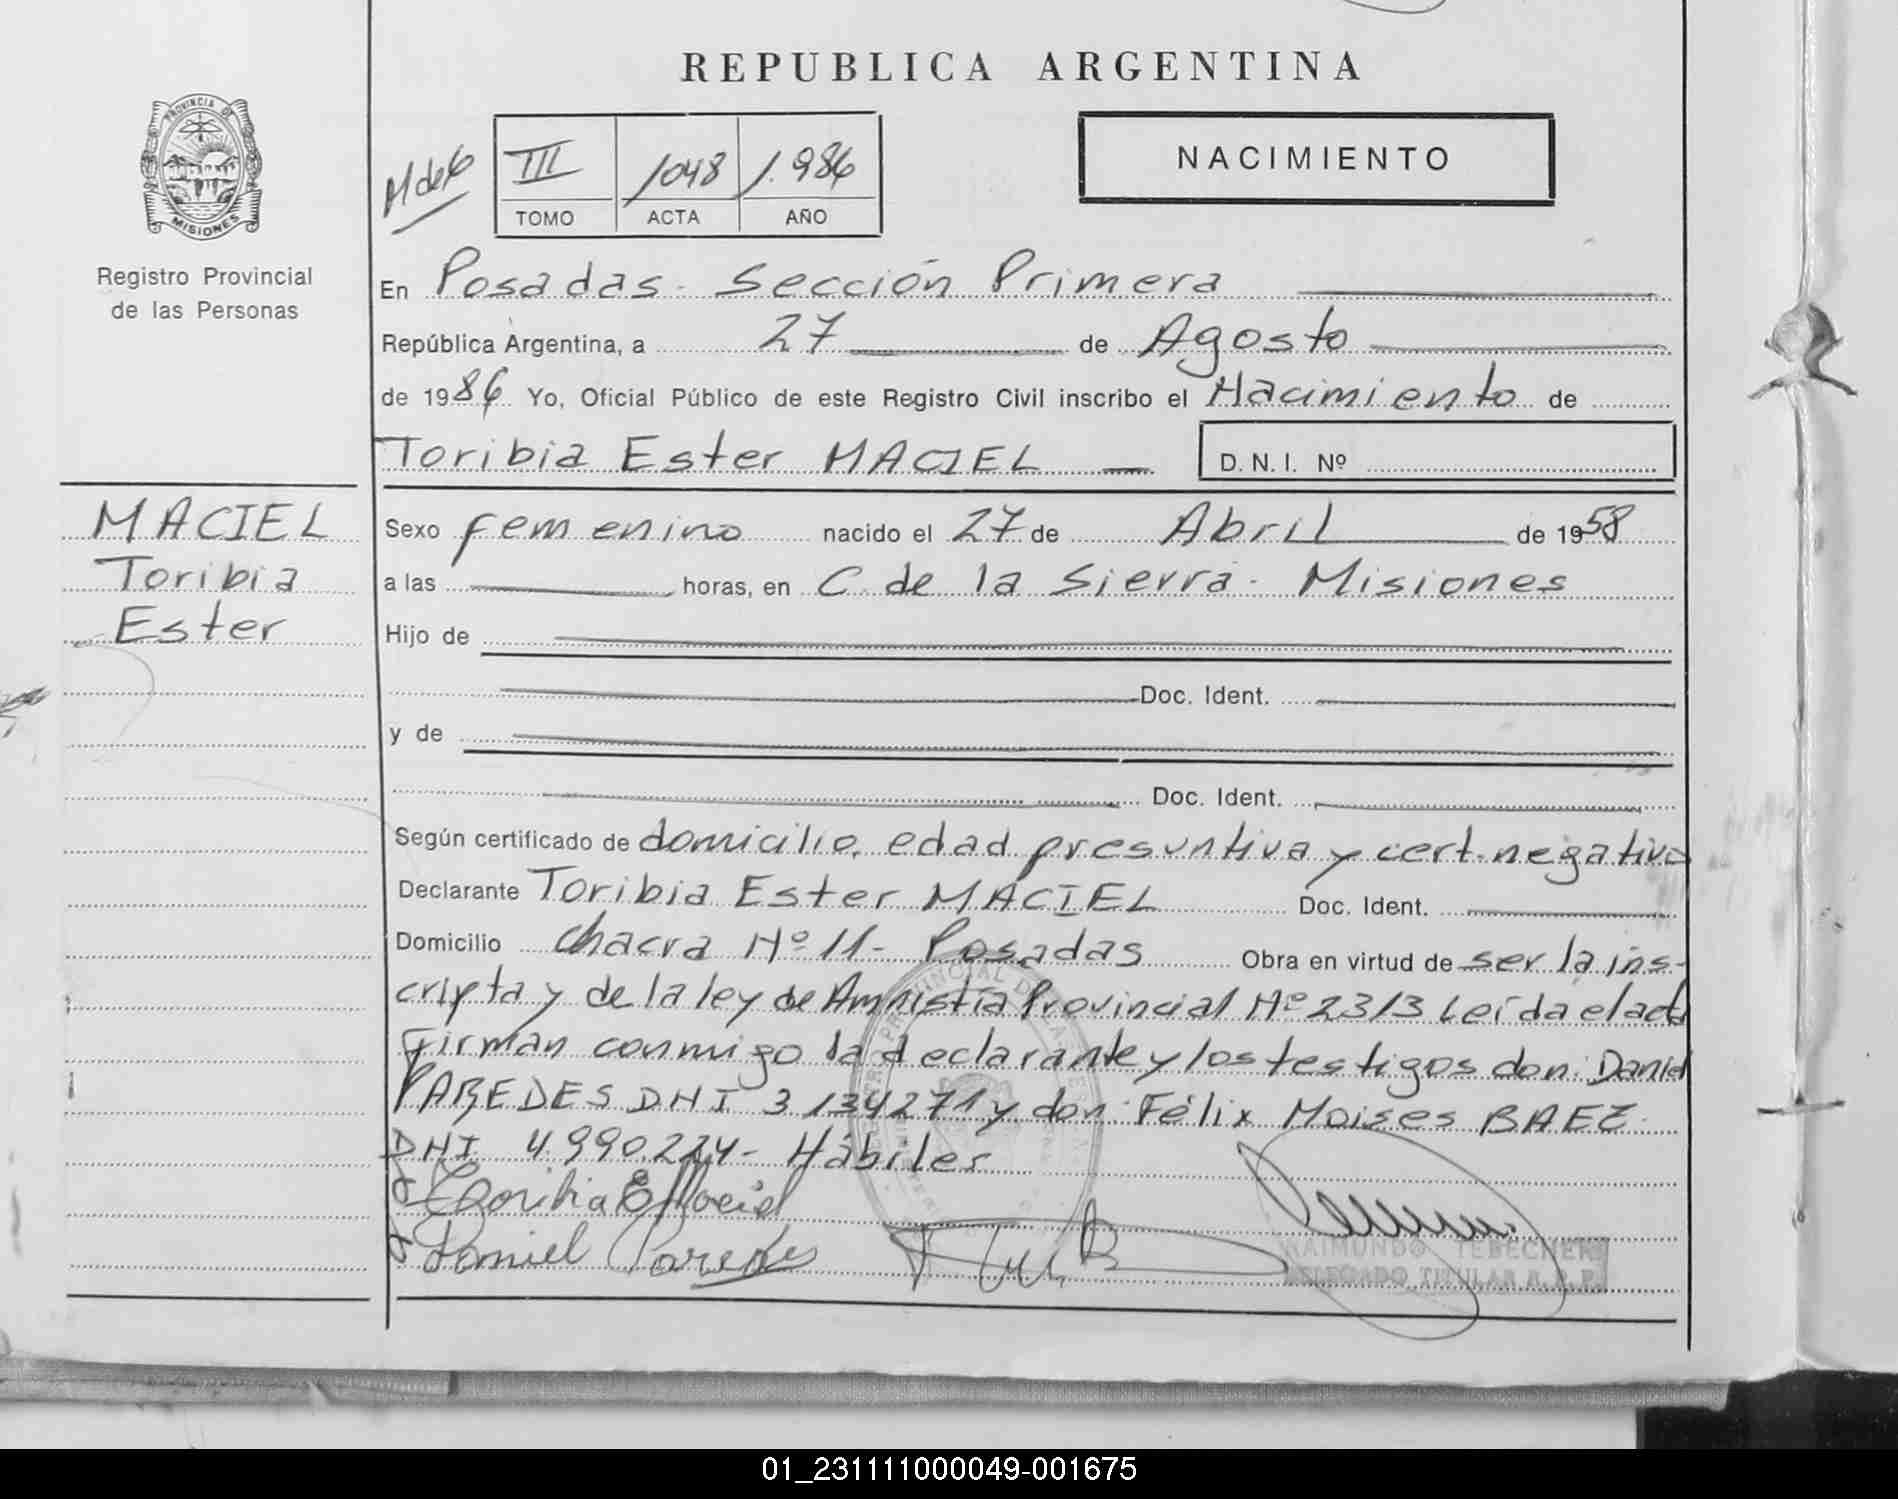 REPUBLICA ARGENTINA
PROVINCIA DE
MISIONES
Registro Provincial
de las Personas
III 1048 1.986
TOMO ACTA AÑO
NACIMIENTO
En Posadas - Sección Primera
República Argentina, a 27 de Agosto
de 1986 Yo, Oficial Público de este Registro Civil inscribo el Nacimiento de
Toribia Ester MACIEL D. N. I. Nº
MACIEL
Toribia
Ester
Sexo femenino nacido el 27 de Abril de 1958
a las horas, en C. de la Sierra - Misiones
Hijo de
Doc. Ident.
y de
Doc. Ident.
Según certificado de domicilio, edad presuntiva y cert. negativo
Declarante Toribia Ester MACIEL Doc. Ident.
Domicilio Chacra Nº 11 - Posadas Obra en virtud de ser la ins-
cripta y de la ley de Amnistía Provincial Nº 2313 Leída el acta
Firman conmigo la declarante y los testigos don: Daniel
PAREDES DNI 3134271 y don: Félix Moises BAEZ
DNI 4.990.224 - Hábiles
Toribia E Maciel
Daniel Paredes
RAIMUNDO TEBECHERI
DELEGADO TITULAR R. P. P.
01_231111000049-001675